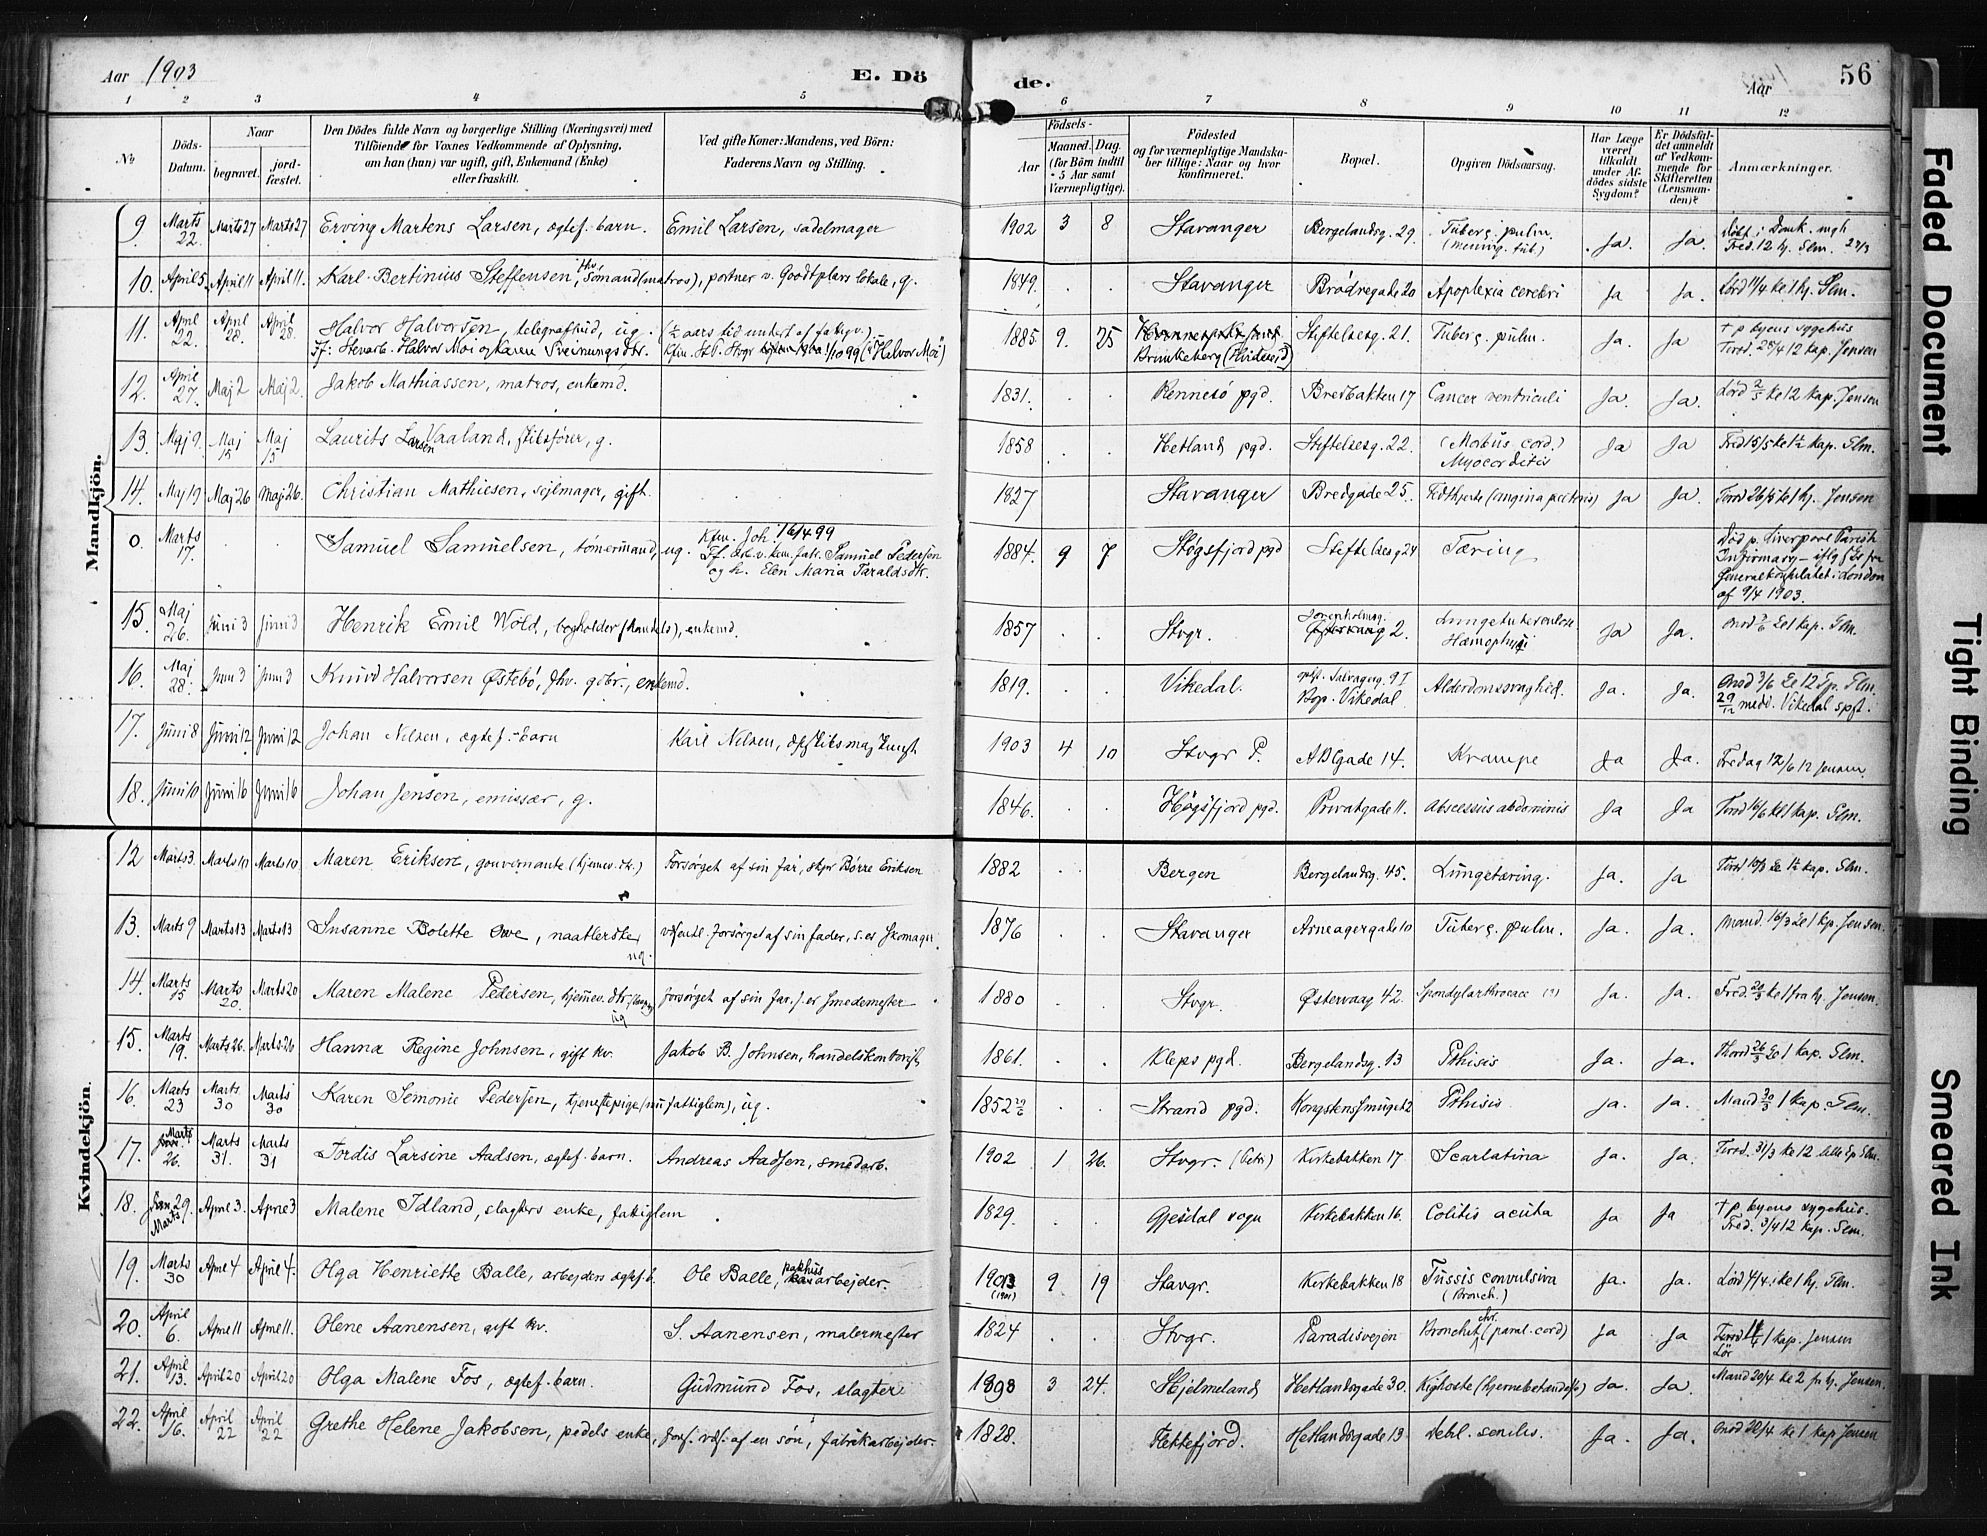 Aar 1903
E. Dö de.
Aar
56
1 2 3 4 5 6 7 8 9 10 11 12
No
Döds-Datum.
Naar
begravet.
jord-fæstet.
Den Dödes fulde Navn og borgerlige Stilling (Næringsvei) med
Tilföiende for Voxnes Vedkommende af Oplysning,
om han (hun) var ugift, gift, Enkemand (Enke)
eller fraskilt.
Ved gifte Koner: Mandens, ved Börn:
Faderens Navn og Stilling.
Födsels-
Aar
Maaned. Dag.
(for Börn indtil
5 Aar samt
Værnepligtige).
Födested
og for værnepligtige Mandska-
ber tillige: Naar og hvor
konfirmeret.
Bopæl.
Opgiven Dödsaarsag.
Har Læge
været
tilkaldt
under Af-
dödes sidste
Sygdom?
Er Dödsfal-
det anmeldt
af Vedkom-
mende for
Skifteretten
(Lensman-
den)?
Anmærkninger.
Mandkjön.
9 Marts 22. Marts 27 Marts 27 Erving Martens Larsen, ægtef. barn. Emil Larsen, sadelmager 1902 3 8 Stavanger Bergelandsg. 29. Tuberc. pulm. (mening. tub.) Ja. Ja. Fred. 12 hj. Slm. 27/3
10. April 5 April 11 April 11. Karl Bertinius Steffensen, fhv. sömand (matros), portner v. Goodtplars lokale, g. 1849. Stavanger Brödregade 20 Apoplexia cerebri Ja Ja. Lörd 11/4 ke 1 hj. Slm.
11. April 22. April 28. April 28. Halvor Halvorsen, telegrafbud, ug. (1/2 aars tid underst. af fattigv.)
Ff: Stenarb. Halvor Moi og Karen Sveinungsdtr. Kfm. St. P. Stvgr 1/10 99 ("Halvor Moi") 1885 9. 25 Brunkeberg (Hvideseid) Stiftelsesg. 21. Tuberc. pulm. Ja. Ja † p. byens sygehus Tirsd. 28/4 12 kap. Jensen
12. April 27. Maj 2 Maj 2. Jakob Mathiassen, matros, enkemd. 1831. Rennesö pgd. Bredbakken 17 Cancer ventriculi Ja. Ja. Lörd 2/5 ke 12 kap. Jensen
13. Maj 9. Maj 15 Maj 15 Laurits Larsen Vaaland, skibsförer, g. 1858 Hetland pgd. Stiftelsesg. 22. (Morbus cord.) Myocarditis Ja Ja Fred 15/5 ke 1 1/2 kap. Slm.
14. Maj 19 Maj 26 Maj 26. Christian Mathiesen, sejlmager, gift. 1827 Stavanger Bredgade 25. Fedthjerte (angina pectoris) Ja Ja. Tirsd 26/5 ke 1 hj. Jensen
0. Marts 17. Samuel Samuelsen, tömermand, ug. Kfm. Joh. 16/4 99
Ff. arb. v. kem. fabr. Samuel Pedersen
og h. Elen Maria Taraldsdtr. 1884. 9 7 Högsfjord pgd Stiftelsesg 24 Tæring Död p. Liverpool Parish
Infirmary – iflg § fra
Generalkonsulatet i London
af 9/4 1903.
15. Maj 26. Juni 3 Juni 3 Henrik Emil Wold, bogholder (handels), enkemd. 1857 Stvgr. Jorenholmsg. 2. Lungetuberculose Hæmophysi Ja Ja. Onsd 3/6 ke 1 kap. Slm.
16. Maj 28. Juni 3 Juni 3 Knud Halvorsen Östebö, fhv. gdbr., enkemd. 1819. Vikedal. opht. Salvagerg. 9 I Bop. Vikedal Alderdomssvaghed. Ja. Ja. Onsd 3/6 ke 12 Sp. Slm. 29/12 medd. Vikedal spgt.
17. Juni 8 Juni 12 Juni 12 Johan Nilsen, ægtef. barn Karl Nilsen, 1903 4 10 Stvgr P. ABCgade 14. Krampe Ja Ja. Fredag 12/6 12 Jensen
18. Juni 10 Juni 16 Juni 16 Johan Jensen, emissær, g. 1846. Högsfjord pgd. Privatgade 11. Abscessus abdominis Ja Ja Tirsd 16/6 kl 1 kap. Slm.
Kvindekjön.
12 Marts 3. Marts 10 Marts 10 Maren Eriksen, gouvernante (hjemmev. dtr.) Forsörget af sin far, skpr Börre Eriksen 1882 Bergen Bergelandsg. 45. Lungetæring. Ja. Ja Tirsd 10/3 ke 1 1/2 kap. Slm.
13. Marts 9 Marts 13 Marts 13 Susanne Bolette Owe, naatlerske, ug. væsentl. forsörget af sin fader, s. er skomager. 1876 Stavanger Arneagergade 10 Tuberc. pulm. Ja. Ja. Mand. 16/3 ke 1 kp. Jensen.
14. Marts 15 Marts 20 Marts 20 Maren Malene Pedersen, hjemmev. dtr. ug forsörget af sin far. f. er Smedemester 1880 Stvgr. Östervaag 42. Spondylarthrocace (?) Ja. Ja. Fred. 20/3 ke 1 fra hj. Jensen.
15. Marts 19. Marts 26. Marts 26 Hanna Regine Johnsen, gift kv. Jakob B. Johnsen, handelskontorist 1861. Klep pgd. Bergelandsg. 13 Pthisis Ja. Ja. Thorsd 26/3 1 kap. Slm.
16. Marts 23 Marts 30 Marts 30 Karen Semonie Pedersen, tjenestepige (nu fattiglem), ug. 1852 29/6 Strand pgd. Kongstensmuget 2 Pthisis Ja. Ja. Mand 30/3 1 kap. Slm.
17. Marts 26. Marts 31. Marts 31 Tordis Larsine Aadsen, ægtef. barn. Andreas Aadsen, smedarb. 1902 1 26. Stvgr. (Petri) Kirkebakken 17 Scarlatina Ja. Ja. Tirsd. 31/3 ke 12 lille Sp Slm.
18. Marts 29. April 3. April 3 Malene Idland, slagters enke, fattiglem 1829. Gjesdal sogn Kirkebakken 16. Colitis acuta Ja Ja † p. byens sygehus. Fred. 3/4 12 kap. Slm.
19. Marts 30 April 4 April 4. Olga Henriette Balle, arbejders ægtef. b. Ole Balle, pakhusarbejder. 1903 (1901) 9 19 Stavgr. Kirkebakken 18 Tussis convulsiva (Bronch.) Ja. Ja. Lörd 4/4 ke 1 hj. Slm.
20. April 6. April 11 April 11. Olene Aanensen, gift kv. S. Aanensen, malermester 1824 Stvgr. Paradisvejen Bronchit chr. (paral. cord) Ja Ja Lör 1 kap. Jensen
21. April 13. April 20 April 20 Olga Malene Fos, ægtef. barn. Gudmund Fos, slagter 1898 3 24. Hjelmeland Hetlandsgade 30. Kighoste (hjernebetændelse) Ja. Ja. Mand 20/4 ke 2 fr hj. Jensen.
22. April 16. April 22 April 22 Grethe Helene Jakobsen, pedels enke, fors. væs. af en sön, fabrikarbejder. 1828. Flekkefjord. Hetlandsgade 13 Debil. senilis. Ja. Ja. Onsd 22/4 ke 1 kap Jensen
Faded Document
Tight Binding
Smeared Ink